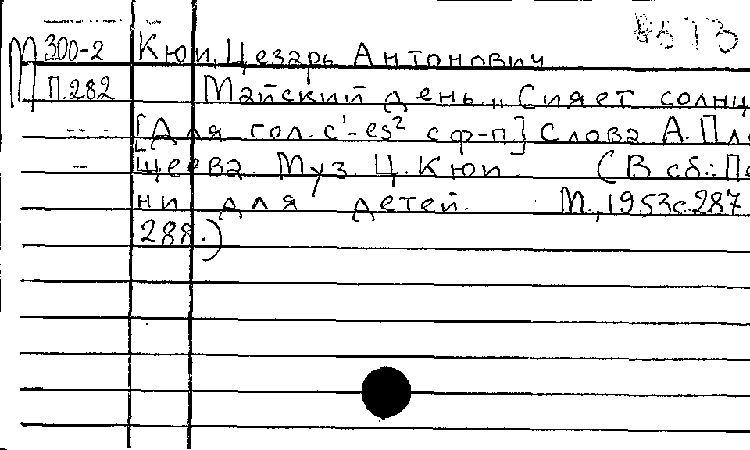 8573
М 300-2 Кюи, Цезарь Антонович
П.282 Майский день „Сияет солнц
[Для гол. c¹-es² с ф-п] Слова А. Пле
щеева Муз. Ц. Кюи. (В сб.: Пес
ни для детей. М., 1953 с. 287
288.)